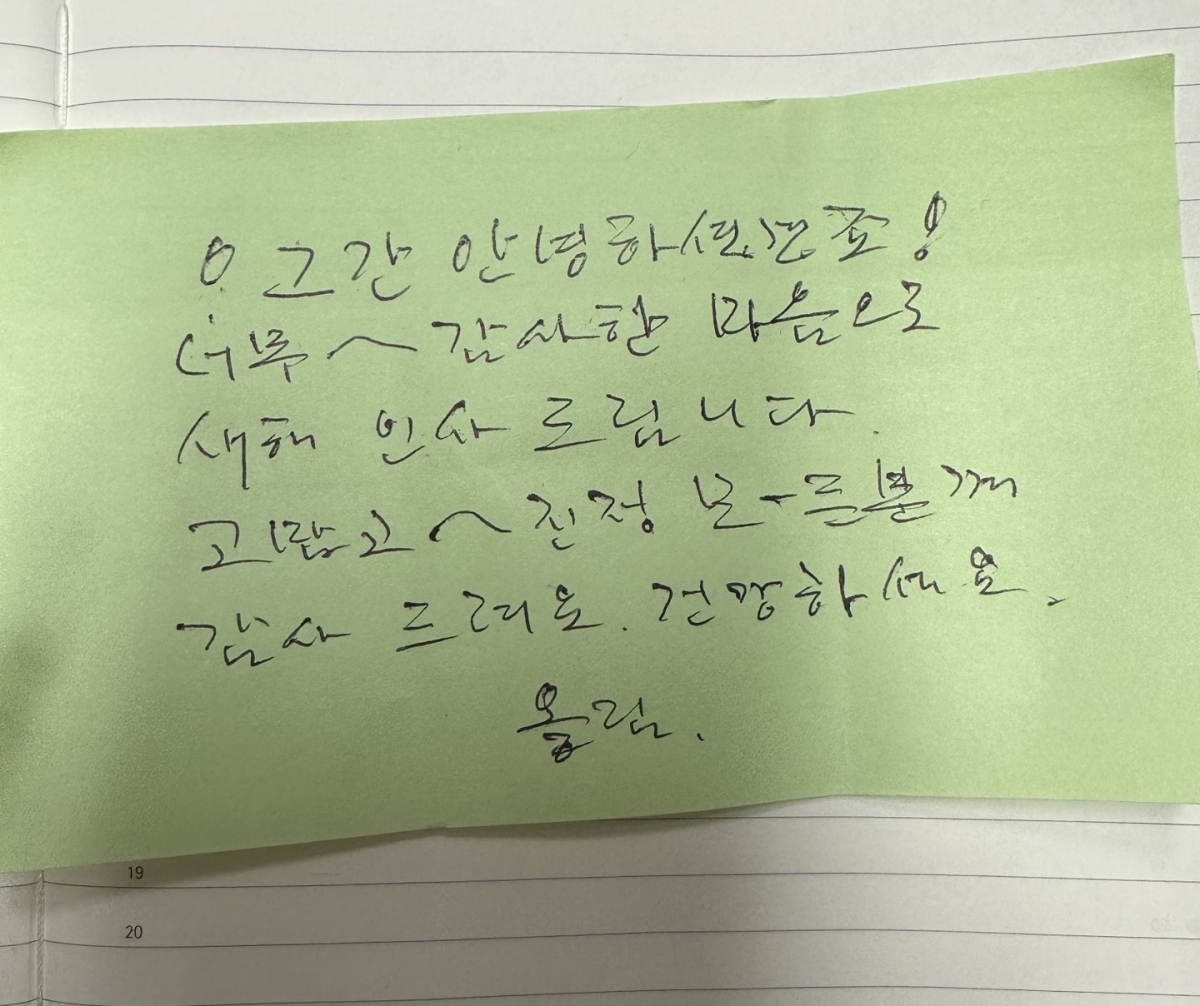 그간 안녕하셨죠!
너무~감사한 마음으로
새해 인사 드립니다.
고맙고~진정 모-든분께
감사 드려요. 건강하세요.
올림.
19
20